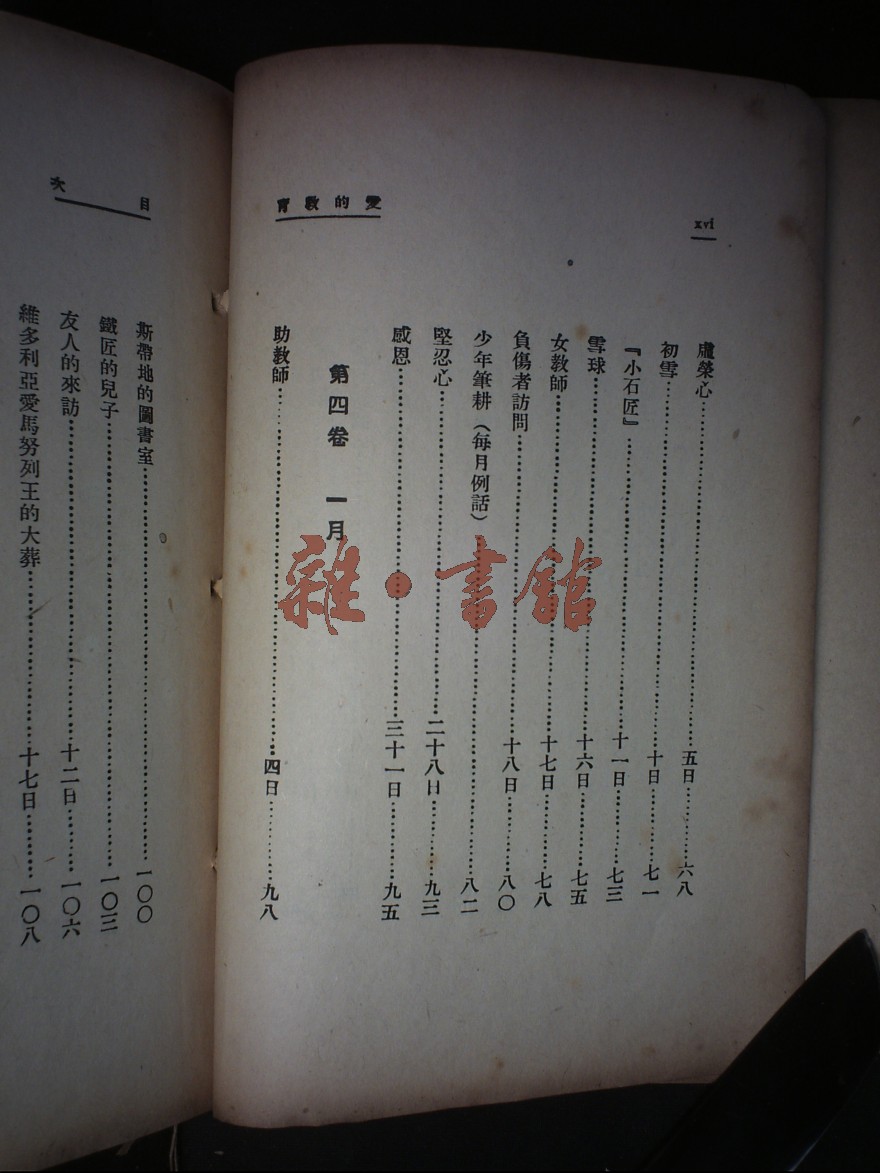 xvi
愛的教育
虛榮心……五日……六八
初雪……十日……七一
『小石匠』……十一日……七三
雪球……十六日……七五
女教師……十七日……七八
負傷者訪問……十八日……八〇
少年筆耕（每月例話）……八二
堅忍心……二十八日……九三
感恩……三十一日……九五
第四卷　一月
助教師……四日……九八
目次
斯帶地的圖書室……一〇〇
鐵匠的兒子……一〇三
友人的來訪……十二日……一〇六
維多利亞愛馬努列王的大葬……十七日……一〇八
雜·書館